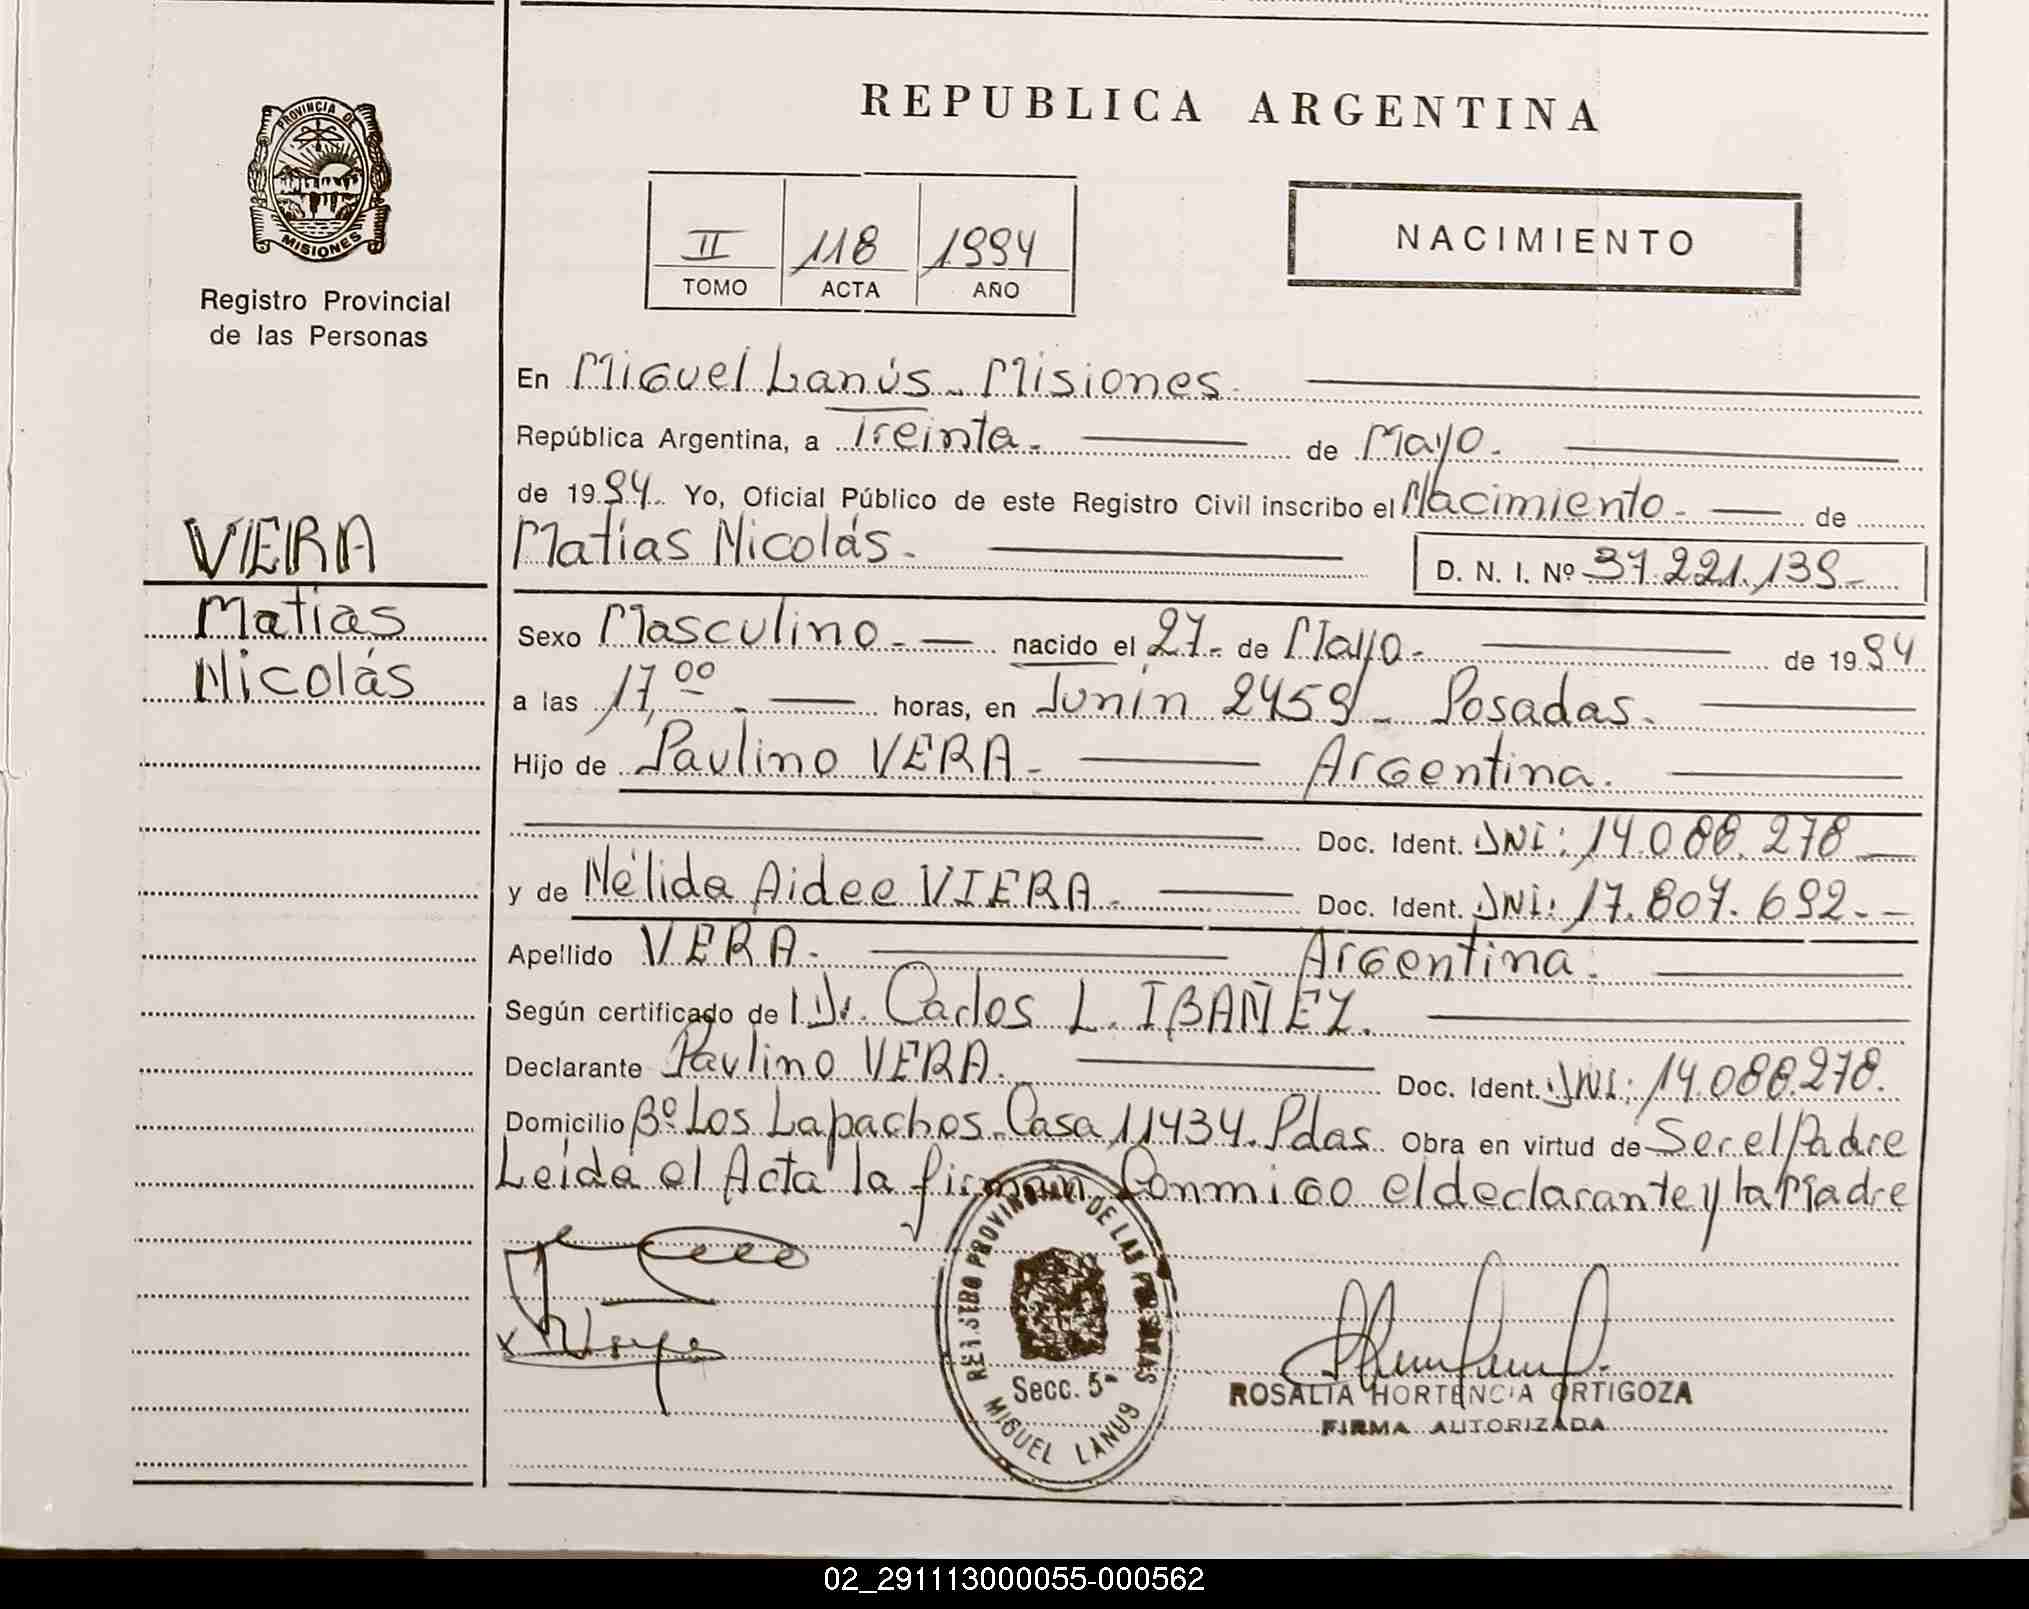 REPUBLICA ARGENTINA
PROVINCIA DE
MISIONES
Registro Provincial
de las Personas
II 118 1994
TOMO ACTA AÑO
NACIMIENTO
VERA
Matías
Nicolás
En Miguel Lanús - Misiones.
República Argentina, a Treinta. de Mayo.
de 1994. Yo, Oficial Público de este Registro Civil inscribo el Nacimiento - de
Matías Nicolás. D. N. I. Nº 37.221.139-
Sexo Masculino. nacido el 27. de Mayo. de 1994
a las 17,00 horas, en Junín 2459 - Posadas.
Hijo de Paulino VERA. Argentina.
Doc. Ident. DNI: 14.088.278
y de Nélida Aidee VIERA. Doc. Ident. DNI: 17.807.692.
Apellido VERA. Argentina.
Según certificado de Dr. Carlos L. IBAÑEZ.
Declarante Paulino VERA. Doc. Ident. DNI: 14.088.278.
Domicilio Bº Los Lapachos. Casa 11434. Pdas. Obra en virtud de Ser el Padre
Leída el Acta la firman Conmigo el declarante y la Madre
REGISTRO PROVINCIAL DE LAS PERSONAS
Secc. 5ª
MIGUEL LANUS
ROSALIA HORTENCIA ORTIGOZA
FIRMA AUTORIZADA
02_291113000055-000562